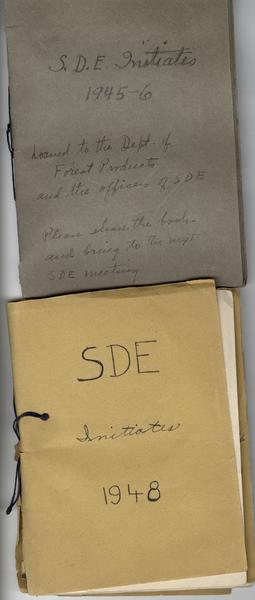 S.D.E. Initiates
1945-6
Loaned to the Dept. of
Forest Products
and the officers of SDE
Please share the book
and bring to the next
SDE meeting
SDE
Initiates
1948